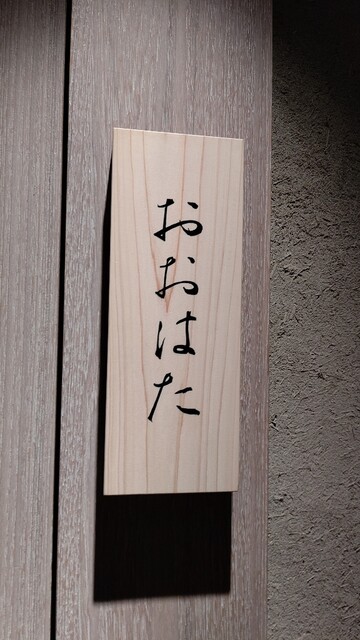 おおはた